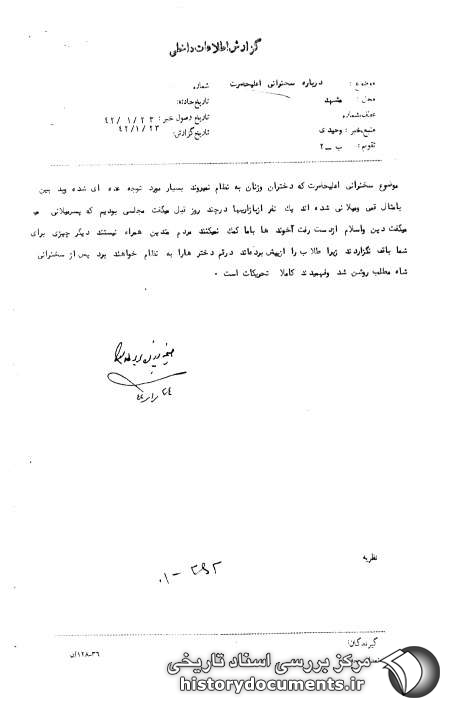 گزارش اطلاعات داخلی
موضوع : درباره سخنرانی اعلیحضرت
شماره
محل : مشهد
تاریخ حادثه:
عطف بشماره
تاریخ وصول خبر : ۲۳ / ۱ / ۴۲
منبع خبر : وحیدی
تاریخ گزارش: ۴۲/۱/۲۳
تقویم : ب ــ ۲
موضوع سخنرانی اعلیحضرت که دختران وزنان به نظام نمیروند بسیار مورد توجه عده ای شده وبد بین
بامثال قمی ومیلانی شده اند یك نفر ازبازاریها درچند روز قبل میگفت مجلسی بودیم که پسرمیلانی می
میگفت دین واسلام ازدست رفت آخوند ها باما کمك نمیکنند مردم متدین همراه نیستند دیگر چیزی برای
شما باقی نگزاردند زیرا طلاب را ازبیش برده‌اند درقم دختر هارا به نظام خواهند برد پس از سخنرانی
شاه مطلب روشن شد وفهمیدند کاملا تحریکات است ۰
نظریه
گیرندگان:
۱۲۸-۳۶/ن
مرکز بررسی اسناد تاریخی
historydocuments.ir